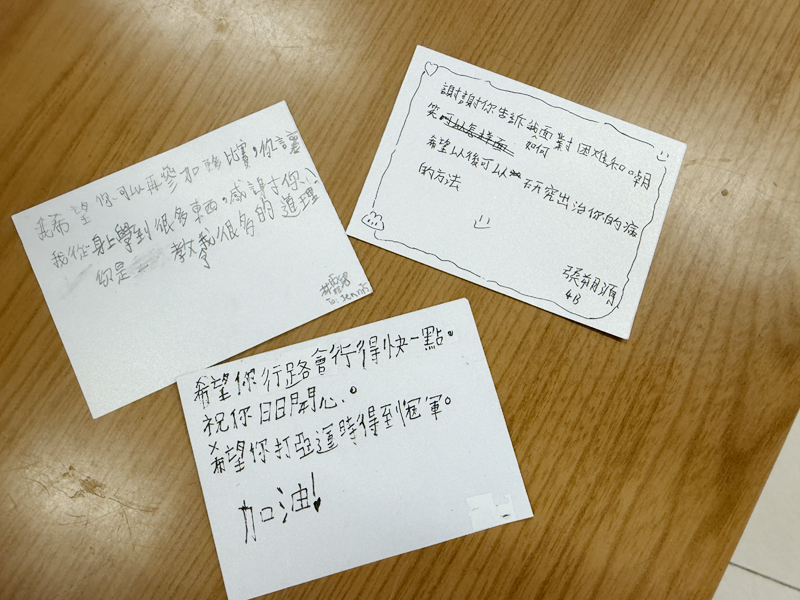 希望你可以再參加 比賽,你讓
我從你身上學到很多東西。感謝你
你是 教我很多的道理
To: Jenni
謝謝你告訴我面對困難和嘲
笑 如何
希望以後可以研究出治你的病
的方法
張朔源
4B
希望你行路會行得快一點。
祝你日日開心。
希望你打亞運時得到冠軍。
加油!